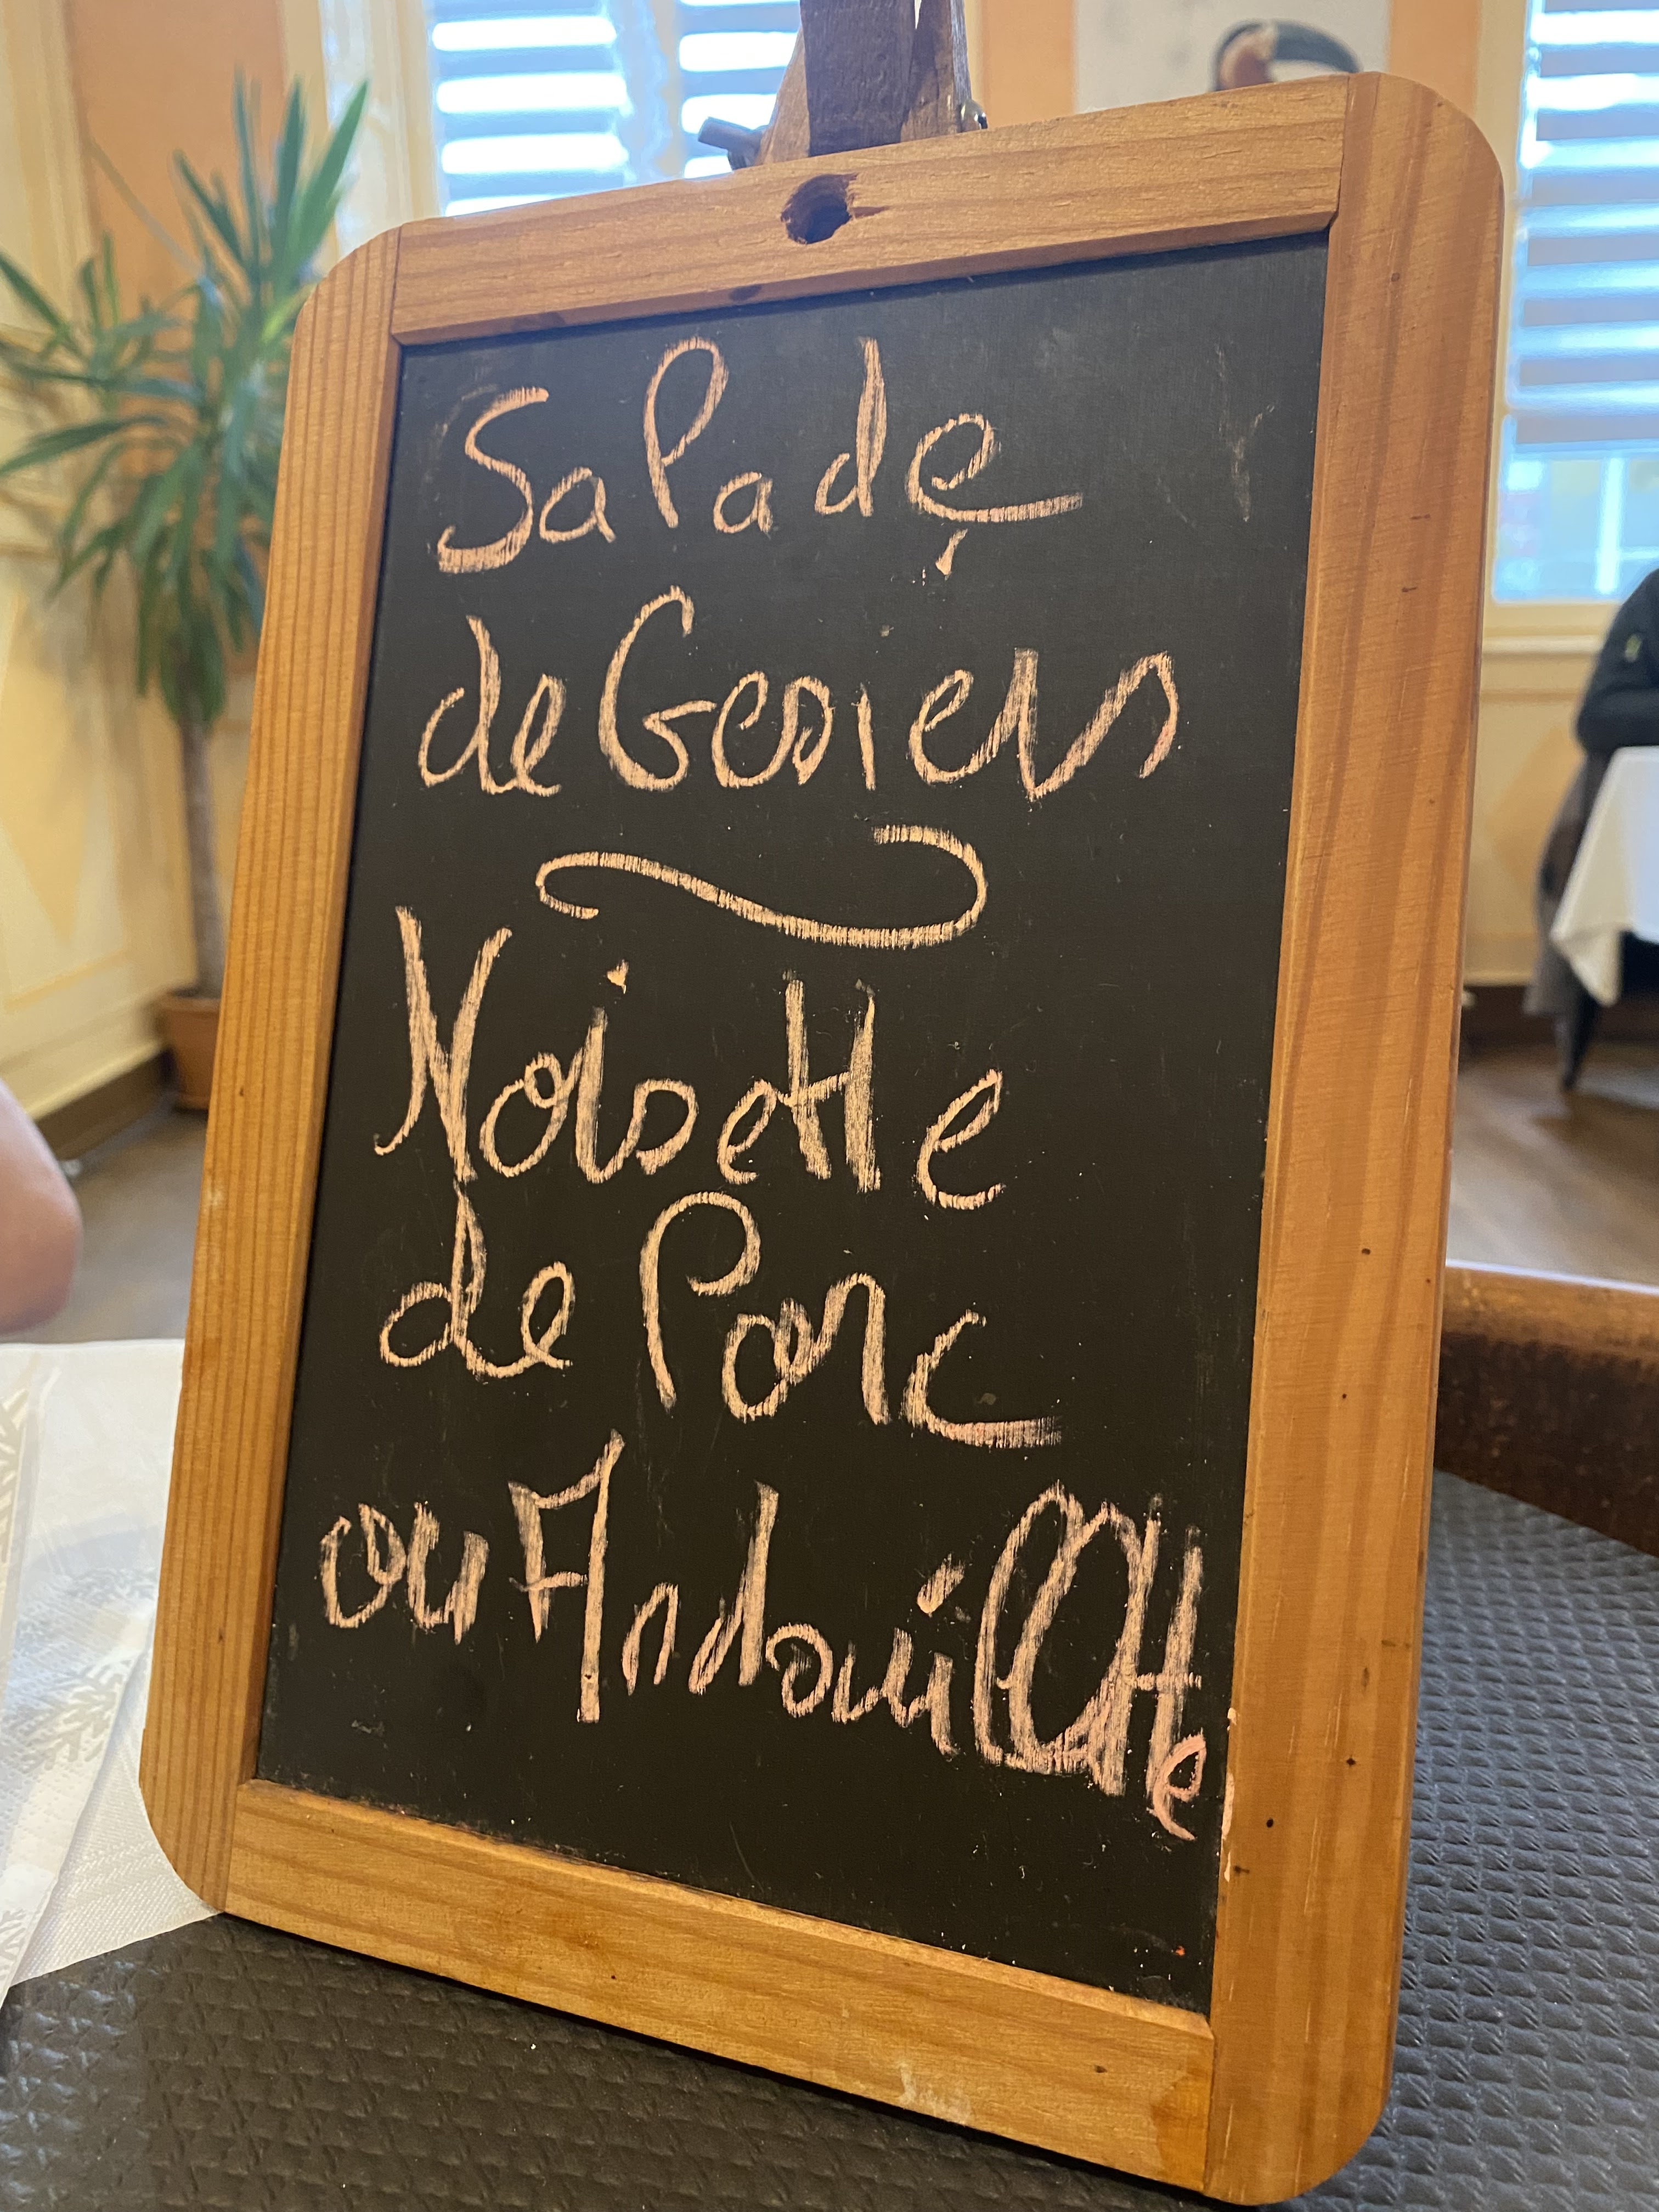 Salade
de Gesiers
Noisette
de Porc
ou Andouillette